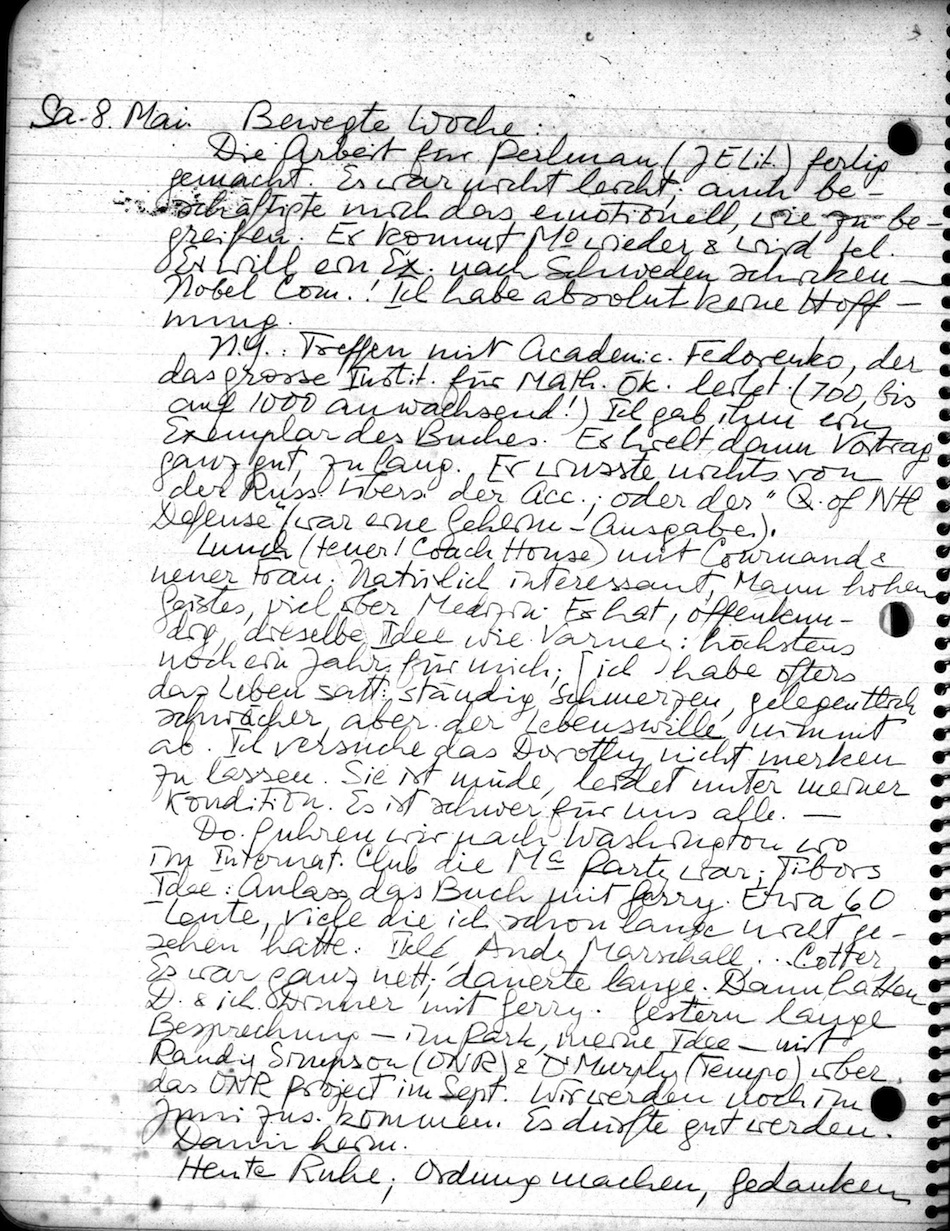 Sa. 8. Mai. Bewegte Woche:
Die Arbeit für Perlman (J E Lit.) fertig
gemacht. Es war nicht leicht, auch be-
schäftigte mich das emotionell, wie zu be-
greifen. Er kommt Mo wieder & wird tel.
Er will ein Ex. nach Schweden schicken —
Nobel Com.! Ich habe absolut keine Hoff-
nung.
N.Y.: Treffen mit Academic. Fedorenko, der
das grosse Instit. für Math. Ök. leitet. (700, bis
auf 1000 anwachsend!) Ich gab ihm ein
Exemplar des Buches. Er hielt dann Vortrag
ganz gut, zu lang. Er wusste nichts von
der Russ. Übers. der Acc.; oder der "Q. of Ntl
Defense" (war eine Geheim-Ausgabe).
Lunch (teuer! Coach House) mit Cournand &
neuer Frau. Natürlich interessant, Mann hohen
Geistes, viel über Medizin. Er hat, offenkun-
dig, dieselbe Idee wie Varney: höchstens
noch ein Jahr für mich; [ich habe öfters
das Leben satt: ständig Schmerzen, gelegentlich
schwächer, aber der Lebenswille nimmt
ab. Ich versuche das Dorothy nicht merken
zu lassen. Sie ist müde, leidet unter meiner
Kondition. Es ist schwer für uns alle. —
Do. fuhren wir nach Washington wo
im Internat. Club die Ma Party war; Tibors
Idee: Anlass das Buch mit Gerry. Etwa 60
Leute, viele die ich schon lange nicht ge-
sehen hatte. Iklé, Andy Marschall .. Cotter
Es war ganz nett; dauerte lange. Dann hatten
D. & ich Dinner mit Gerry. Gestern lange
Besprechung — im Park, meine Idee — mit
Randy Simpson (ONR) & D. Murphy (Tempo) über
das ONR Project im Sept. Wir werden noch im
Juni zus. kommen. Es dürfte gut werden.
Dann heim.
Heute Ruhe; Ordnung machen, Gedanken